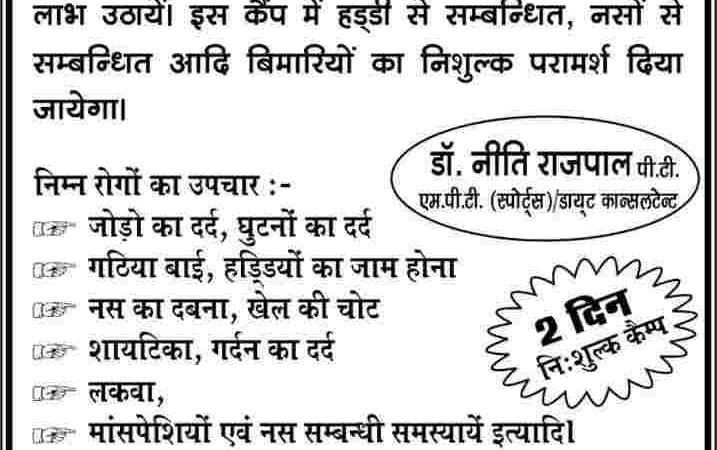 लाभ उठायें। इस कैंप में हड्डी से सम्बन्धित, नसों से
सम्बन्धित आदि बिमारियों का निशुल्क परामर्श दिया
जायेगा।
डॉ. नीति राजपाल पी.टी.
एम.पी.टी. (स्पोर्ट्स)/डायट कान्सलटेन्ट
निम्न रोगों का उपचार :-
जोड़ो का दर्द, घुटनों का दर्द
गठिया बाई, हड्डियों का जाम होना
नस का दबना, खेल की चोट
शायटिका, गर्दन का दर्द
लकवा,
मांसपेशियों एवं नस सम्बन्धी समस्यायें इत्यादि।
2 दिन
नि:शुल्क कैम्प